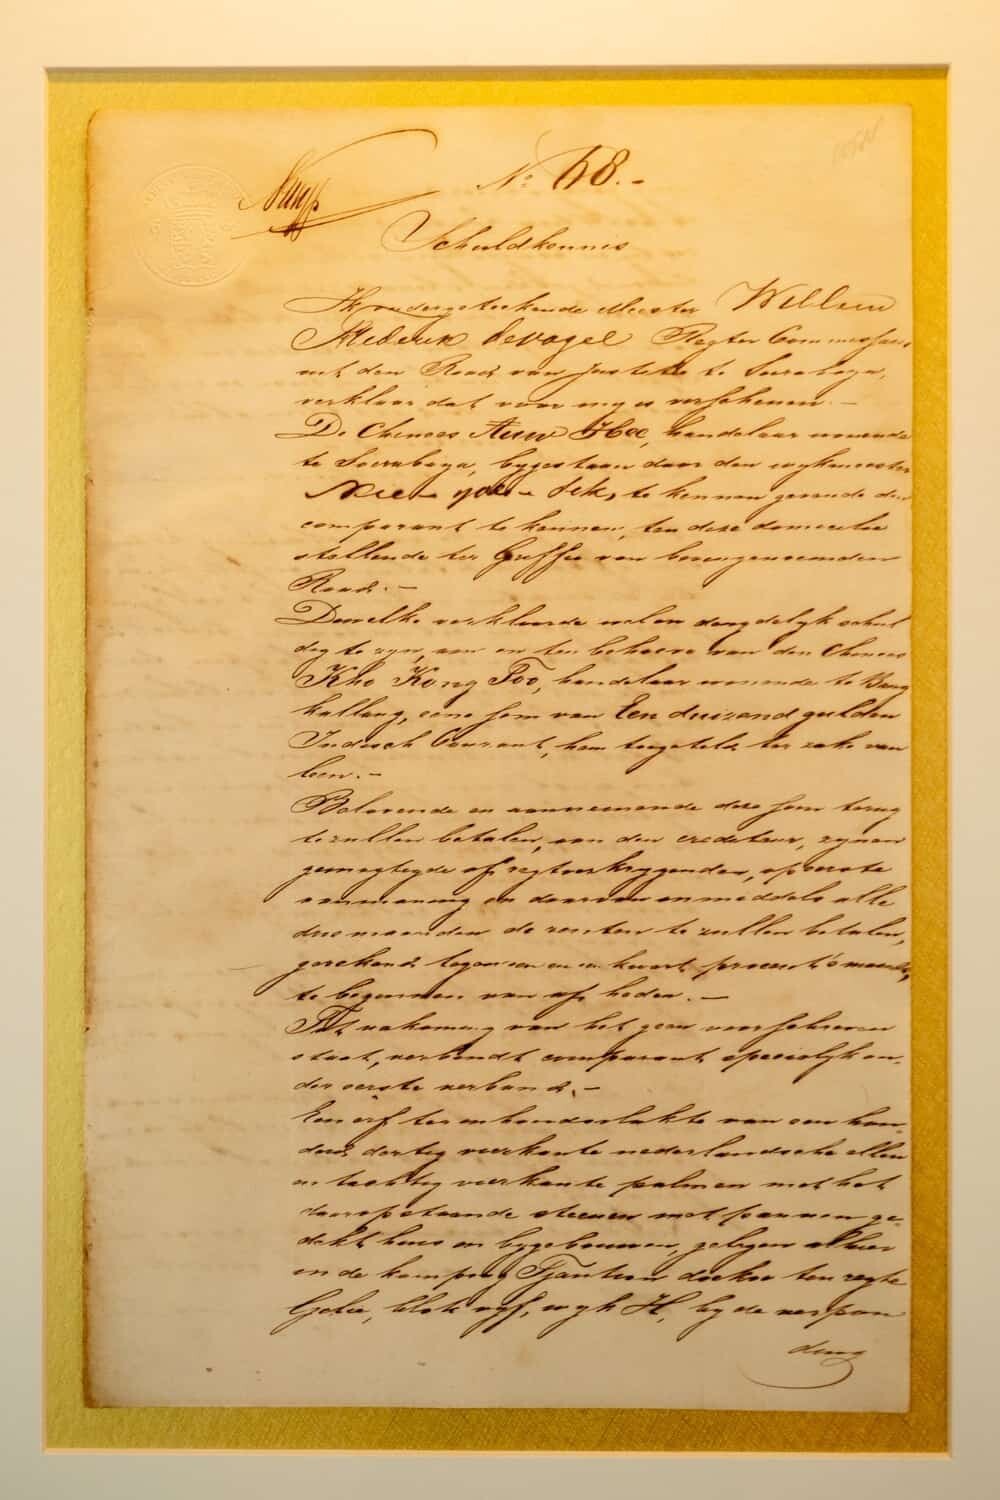 No: 68.-
Schuldkennis
Ik ondergeteekende Meester Willem
Frederik de Vogel Regter Commissaris
uit den Raad van Justitie te Soerabaya,
verklaar dat voor my is verschenen.-
De Chinees Auw Hoe, handelaar wonende
te Soerabaya, bygestaan door den wykmeester
te kennen gevende den
comparant te kennen, ten deze domicilie
stellende ter Griffie van bovengenoemden
Raad.-
Dewelke verklaarde wel en deugdelyk schul
dig te zyn, aan en ten behoeve van den Chinees
Kho Kong Too, handelaar wonende te Bang
kallang, eene som van Een duizend gulden
Indisch Courant, hem toegeteld ter zake van
leen.-
Belovende en aannemende deze som terug
te zullen betalen, aan den crediteur, zynen
gemagtigde of regtverkrygenden, op eerste
aanmaning en daarvan inmiddels alle
drie maanden de renten te zullen betalen,
gerekend tegen een en een kwart procent 's maands,
te beginnen van af heden.-
Tot nakoming van het geen voorschreven
staat, verbindt comparant speciaalyk on-
der eerste verband.-
Een erf ter inhoudsvlakte van een hon-
derd dertig vierkante nederlandsche ellen
en tachtig vierkante palmen met het
daarop staande steenen met pannen ge-
dekt huis en bygebouwen, gelegen alhier
in de kampong Tjantian doekoe ten regte
Zyde, blok vyf, wyk H, by de verpon
ding